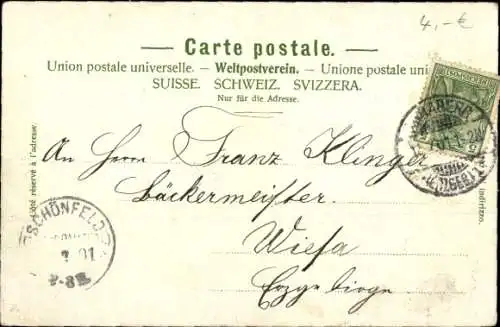 4,- €
Carte postale.
Union postale universelle. — Weltpostverein. — Unione postale uni
SUISSE. SCHWEIZ. SVIZZERA.
Nur für die Adresse.
An Herrn Franz Klinger
Bäckermeister.
Wiesa
Erzgebirge.
réservé à l'adresse
indirizzo.
SCHÖNFELD